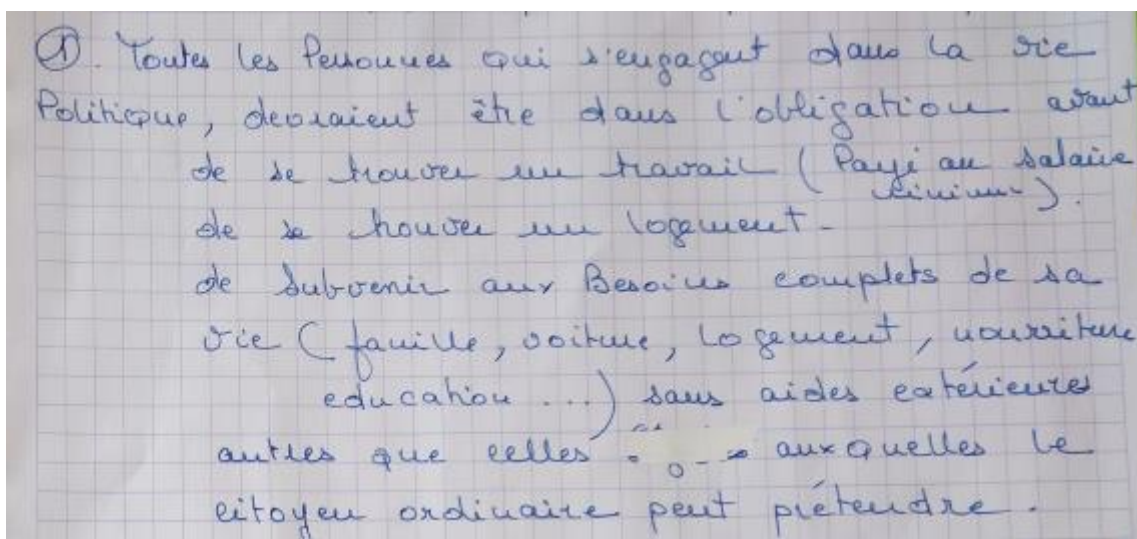 ① . Toutes les Personnes qui s'engagent dans la vie
Politique, devraient être dans l'obligation avant
de se trouver un travail ( Payé au salaire
minimum ).
de se trouver un logement -
de Subvenir aux Besoins complets de sa
vie ( famille, voiture, logement, nourriture
education ... ) sans aides extérieures
autres que celles auxquelles le
citoyen ordinaire peut prétendre.